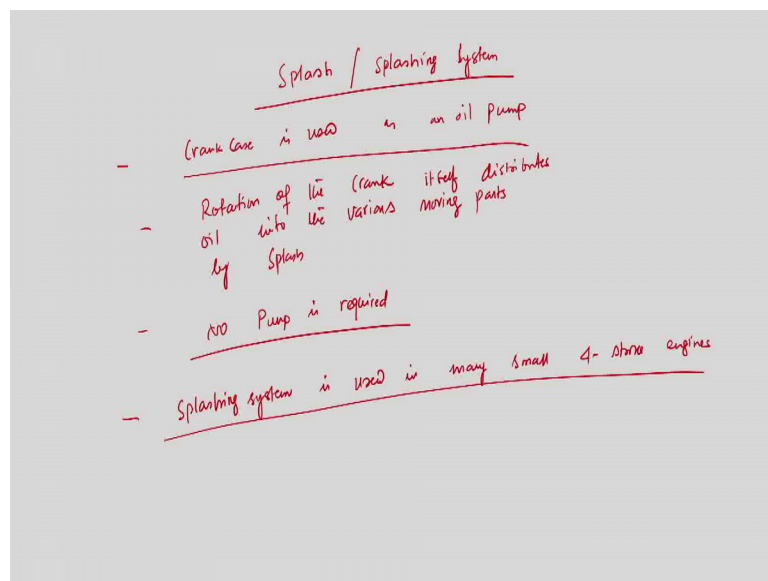 Splash / Splashing System
- Crank Case is used as an oil Pump
- Rotation of the Crank itself distributes
oil into the various moving parts
by Splash
- NO Pump is required
- Splashing system is used in many small 4- stroke engines